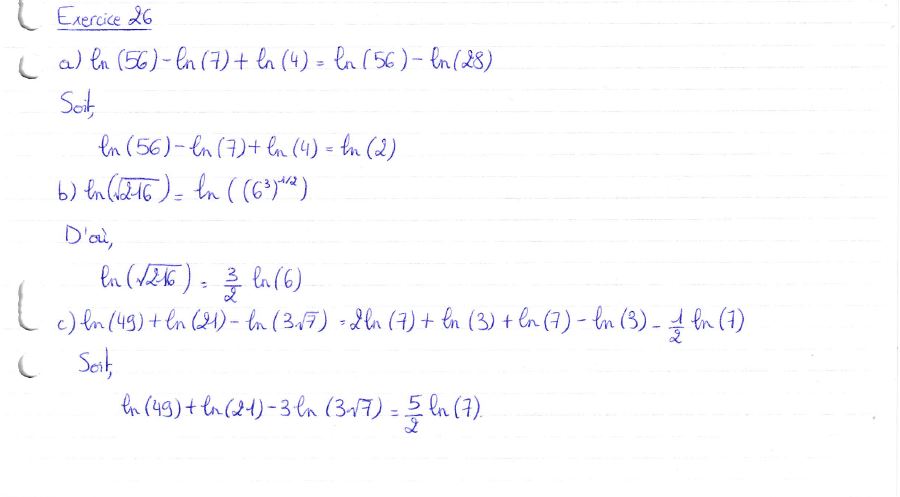 Exercice 26
a) ln (56) - ln (7) + ln (4) = ln (56) - ln (28)
Soit,
ln (56) - ln (7) + ln (4) = ln (2)
b) ln(√216) = ln ((6³)^1/2)
D'où,
ln (√216) = 3/2 ln (6)
c) ln (49) + ln (21) - ln (3√7) = 2ln (7) + ln (3) + ln (7) - ln (3) - 1/2 ln (7)
Soit,
ln (49) + ln (21) - 3 ln (3√7) = 5/2 ln (7)